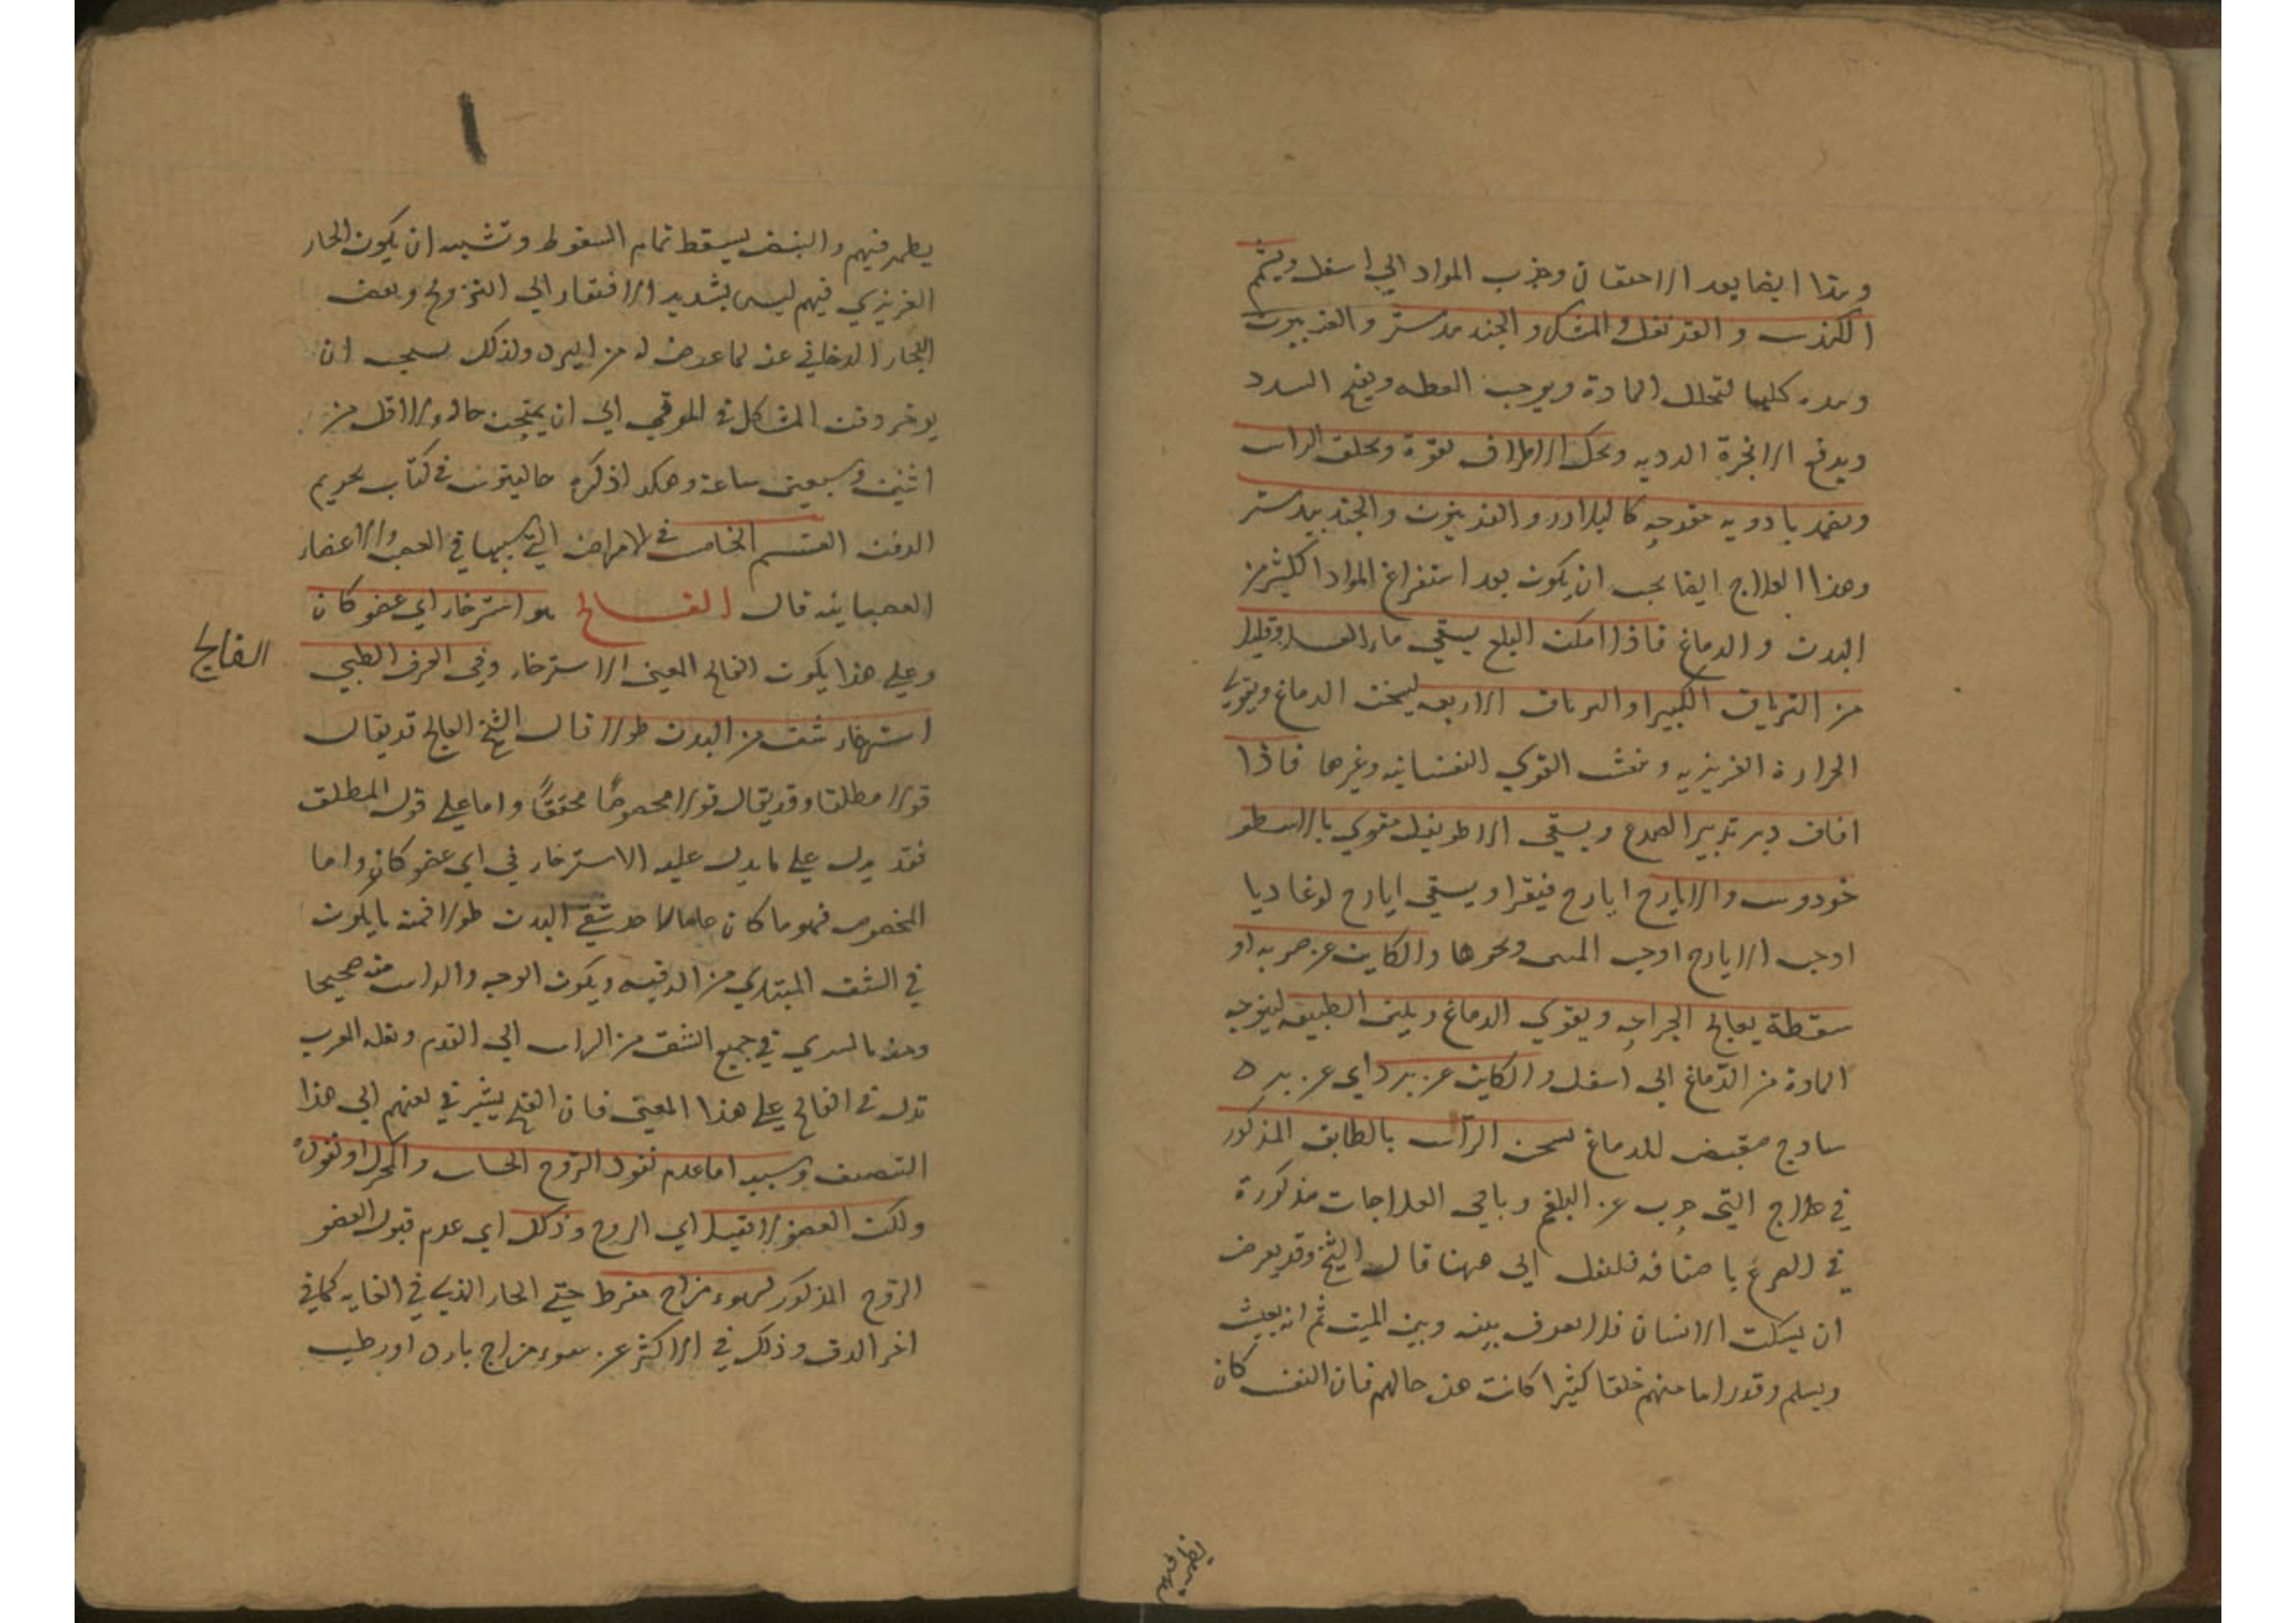 وهذا ايضا بعد الاحتقان وجذب المواد الي اسفل ويشم
الكندس و القرنفل والمسك و الجند بيدستر والفربيون
وهذه كلها لتحلل المادة ويوجب العطسه ويفتح السدد
ويدفع الابخرة الرديه وتحك الاطراف بقوة ويحلق الراس
ويضمد بادويه مقرحه كالبلادر و الفربيون والجند بيدستر
وهذا العلاج ايضا يجب ان يكون بعد استفراغ المواد الكثير من
البدن و الدماغ فاذا امكن البلع يسقي ماء العسل وقليلا
من الترياق الكبير او الترياق الاربعه ليسخن الدماغ ويقوي
الحرارة الغريزيه وينعش القوي النفسانيه وغيرها فاذا
افاق دبر تدبير الصرع ويسقي الاطريفل مقوي بالاسطو
خودوس والايارج ايارج فيقرا ويسقي ايارج لوغاديا
اوحب الايارج اوحب المسى ونحوها والكاين عن ضربه او
سقطة يعالج الجراحه ويقوي الدماغ ويلين الطبيعه ليتوجه
المادة من الدماغ الي اسفل والكاين عن برد اي عن برد
ساذج مقبض للدماغ يسخن الراس بالطابق المذكور
في علاج التي حرب عن البلغم وباقي العلاجات مذكورة
في الصرع باصنافه فلنقل الي ههنا قال الشيخ وقد يعرض
ان يسكت الانسان فلا يعرف بينه وبين الميت ثم انه يعيش
ويسلم وقد راينا منهم خلقا كثيرا كانت هذه حالهم فان النفس كان
يظهر فيهم والنبض يسقط تمام السقوط وتشبه ان يكون الحار
الغريزي فيهم ليس بشديد الافتقار الي التروح ونفض
البخار الدخاني عنه لما عرض له من البرد ولذلك يستحب ان
يوخر دفن المشكل في الموتي الي ان يستبين حاله ولا اقل من
اثنين وسبعين ساعة وهكذا ذكره جالينوس في كتاب تحريم
الدفن القسم الخامس في الامراض التي سببها في العصب والاعضاء
العصبانيه قال الفالج هو استرخاء اي عضو كان
الفالج
وعلي هذا يكون الفالج المعني الاسترخاء وفي العرف الطبي
استرخاء شق من البدن طولا قال الشيخ الفالج قد يقال
قولا مطلقا وقد يقال قولا مخصوصا محققا واما علي قول المطلق
فقد يدل علي ما يدل عليه الاسترخاء في اي عضو كان واما
المخصوص فهو ما كان عاما لاحد شقي البدن طولا فمنه ما يكون
في الشق المبتدي من الرقبه ويكون الوجه والراس معه صحيحا
ومنه ما يسري في جميع الشق من الراس الي القدم ولغه العرب
تدل في الفالج علي هذا المعني فان الفلج يشير في لغتهم الي هذا
التنصيف وسببه اما عدم نفوذ الروح الحساس والمحرك او نفوذه
ولكن العضو لا يقبله اي الروح وذلك اي عدم قبول العضو
الروح المذكور لسوء مزاج مفرط حتي الحار الذي في الغايه كما في
اخر الدق وذلك في الاكثر عن سوء مزاج بارد او رطب